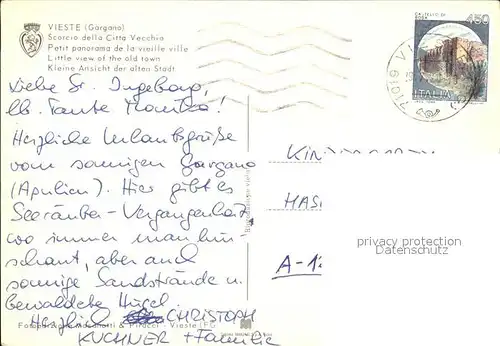 VIESTE (Gargano)
Scorcio della Città Vecchia
Petit panorama de la vieille ville
Little view of the old town
Kleine Ansicht der alten Stadt
CASTELLO DI
450
ITALIA
71019 VI
Liebe Sr. Ingeborg,
lb. Tante Monika!
Herzliche Urlaubsgrüße
vom sonnigen Gargano
(Apulien). Hier gibt es
Seeräuber-Vergangenheit,
wo immer man hin-
schaut, aber auch
sonnige Sandstrände u.
bewaldete Hügel.
Herzlich CHRISTOPH
KUCHNER + Familie
KIN
HAS
A-1
privacy protection
Datenschutz
Vieste (FG